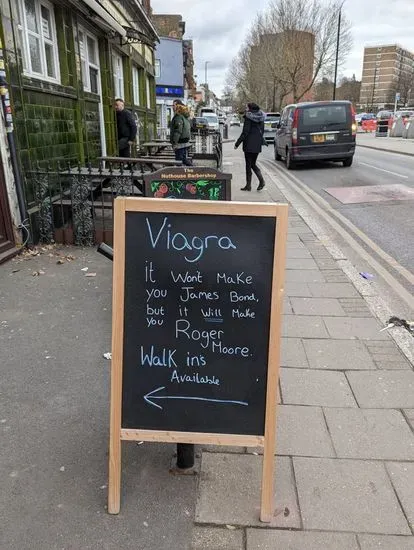 The
Nuthouse Barbershop
Viagra
it Won't Make
you James Bond,
but it Will Make
You Roger
Moore.
Walk in's
Available